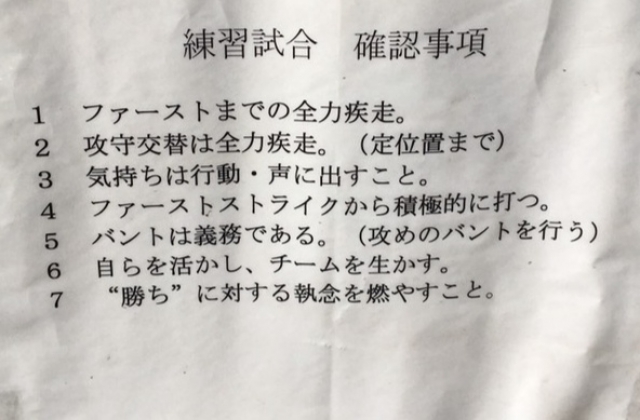 練習試合　確認事項
1　ファーストまでの全力疾走。
2　攻守交替は全力疾走。（定位置まで）
3　気持ちは行動・声に出すこと。
4　ファーストストライクから積極的に打つ。
5　バントは義務である。（攻めのバントを行う）
6　自らを活かし、チームを生かす。
7　“勝ち”に対する執念を燃やすこと。